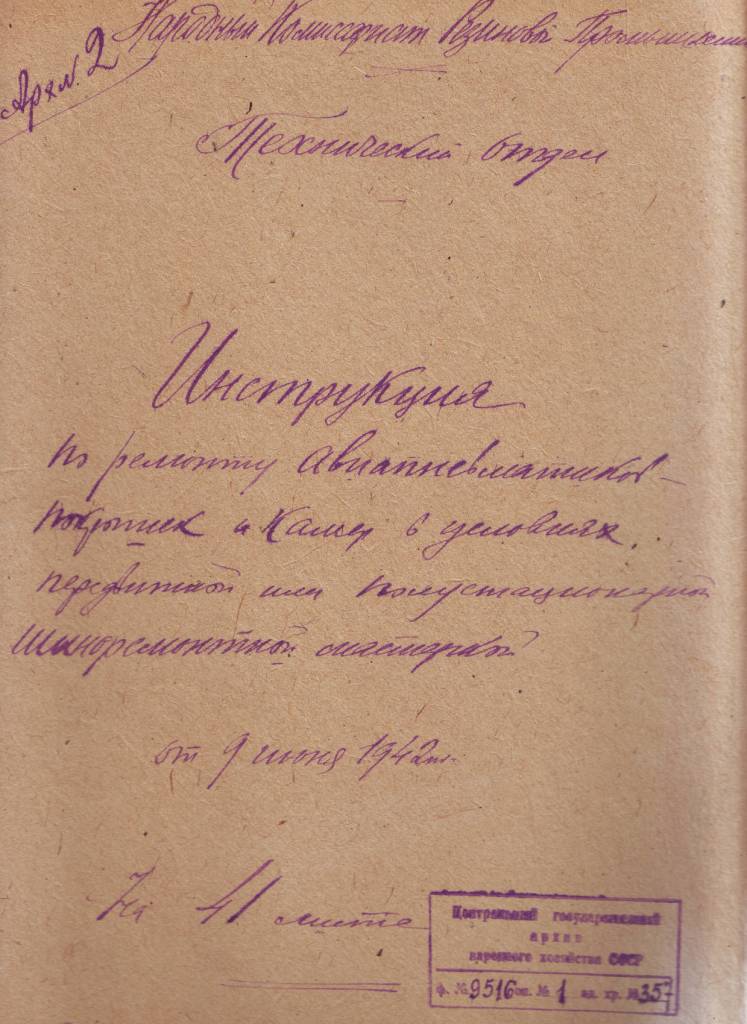 Народный Комиссариат Резиновой Промышлен
Арх N. 2
Технический отдел
Инструкция
по ремонту Авиапневматиков –
покрышек и камер в условиях
передвижной или полустационарной
шиноремонтной мастерской
от 9 июня 1942 г.
На 41 листе
Центральный государственный
архив
народного хозяйства СССР
ф. № 9516 оп. № 1 ед. хр. № 357